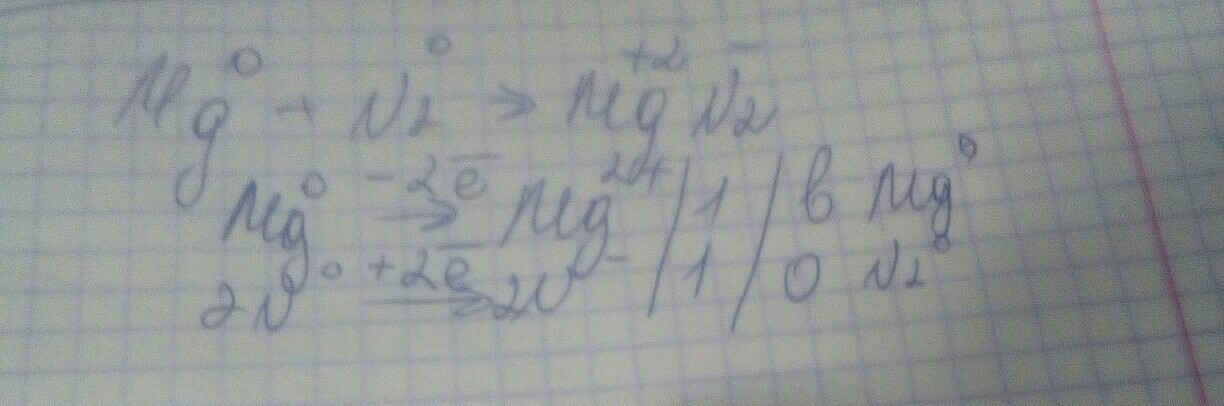 Mg⁰ + N₂⁰ → Mg⁺²N₂⁻
Mg⁰ -2e̅→ Mg²⁺ / 1 / в Mg⁰
2N⁰ +2e̅→ 2N⁻ / 1 / О N₂⁰